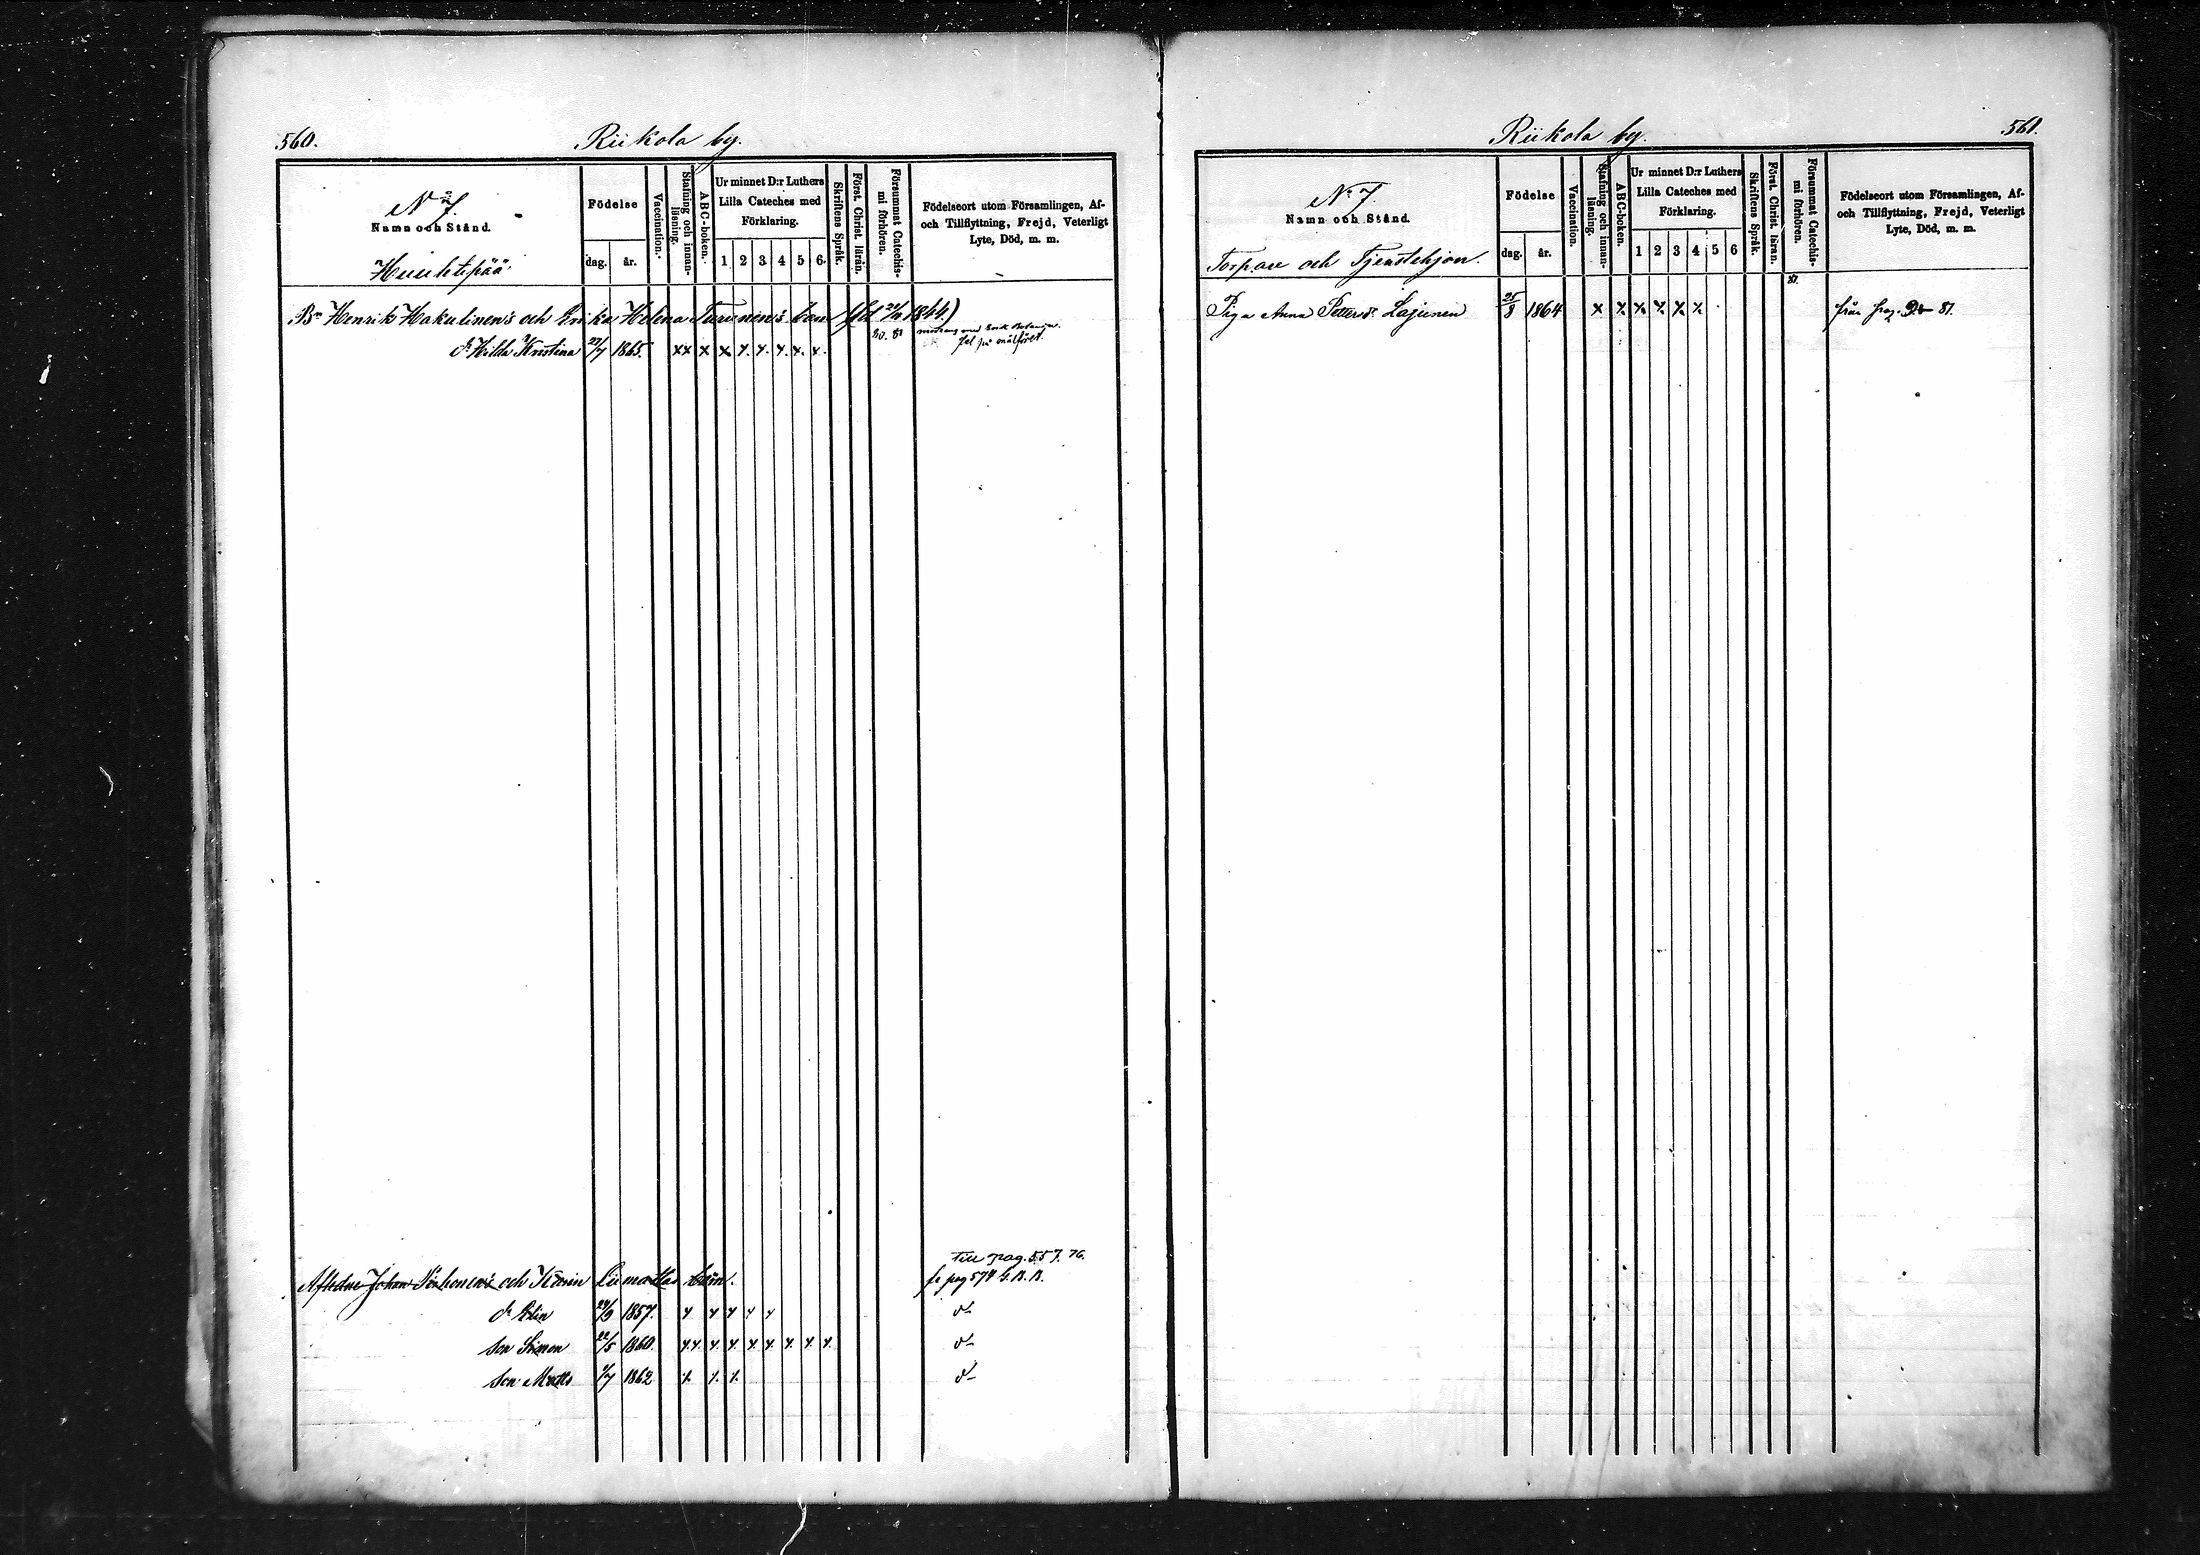 560.
Riikola by.
N:o 7.
Namn och Stånd.
Huuhtipää
Födelse
dag.
år.
Vaccination.
Stafning och innan-
läsning.
ABC-boken.
Ur minnet D:r Luthers
Lilla Cateches med
Förklaring.
1 2 3 4 5 6
Skriftens Språk.
Först. Christ. läran.
Försummat Catechis-
mi förhören.
Födelseort utom Församlingen, Af-
och Tillflyttning, Frejd, Veterligt
Lyte, Död, m. m.
Bn Henrik Hakulinen's och Helena Turunen's barn (fd 1844.)
80. 81
fel på målföret.
dr Hilda Kristina 27/7 1865. x x x x x x x x x
till pag. 557. 76.
Aflidne Johan och Karin barn.
pag 574 b. B. B.
dr Elin 24/9 1857. x x x x x d-
son Simon 22/5 1860. x x x x x x x x x d-
son Matts 1862 x x x d-
561.
Riikola by.
N:o 7.
Namn och Stånd.
Torpare och Tjenstehjon.
Födelse
dag.
år.
Vaccination.
Stafning och innan-
läsning.
ABC-boken.
Ur minnet D:r Luthers
Lilla Cateches med
Förklaring.
1 2 3 4 5 6
Skriftens Språk.
Först. Christ. läran.
Försummat Catechis-
mi förhören.
Födelseort utom Församlingen, Af-
och Tillflyttning, Frejd, Veterligt
Lyte, Död, m. m.
81.
Piga Anna Pettersdr Lajunen 25/8 1864 x x x x x x från pag. 81.